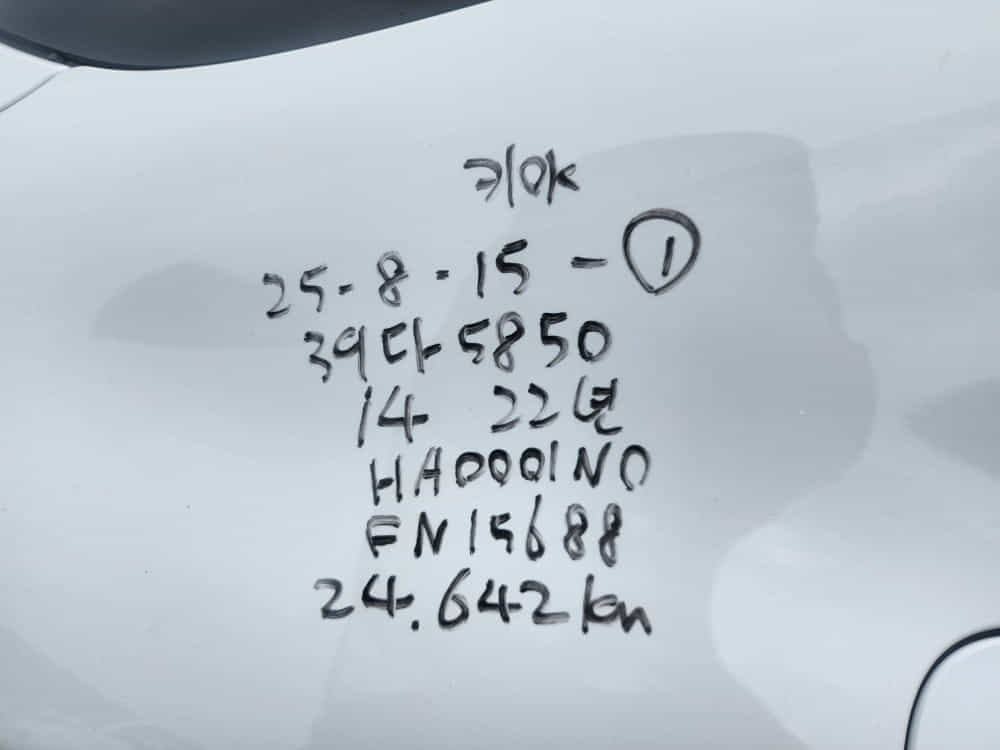 키아
25-8-15-①
39다5850
14 22년
HA0001NO
FN15688
24.642km